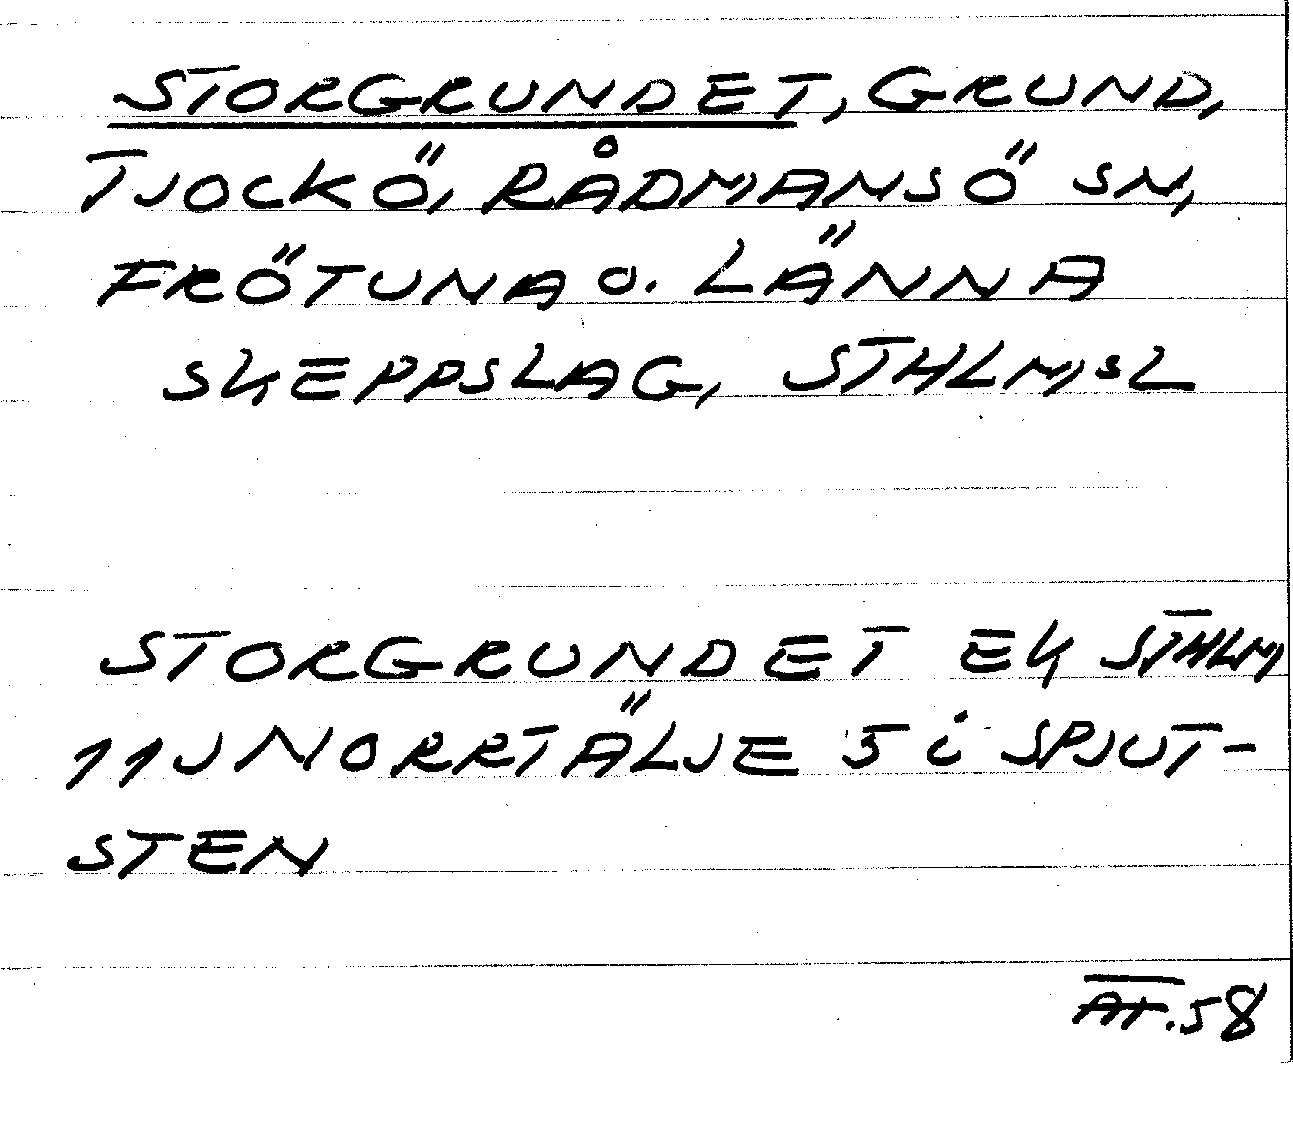 STORGRUNDET, GRUND,
TJOCKÖ, RÅDMANSÖ SN,
FRÖTUNA O. LÄNNA
SKEPPSLAG, STHLM,SL
STORGRUNDET EK STHLM,
11J NORRTÄLJE 5 i SPJUT-
STEN
AT.58